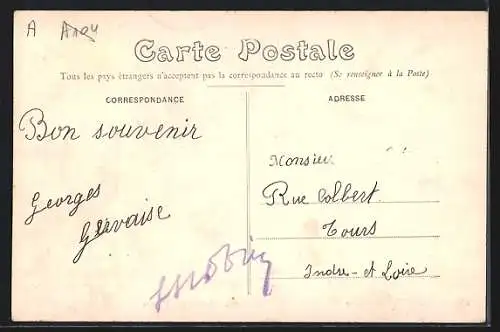 A
Carte Postale
Tous les pays étrangers n'acceptent pas la correspondance au recto (Se renseigner à la Poste)
CORRESPONDANCE
ADRESSE
Bon souvenir
Georges
Gervaise
Monsieur
Rue Colbert
Tours
Indre-et Loire